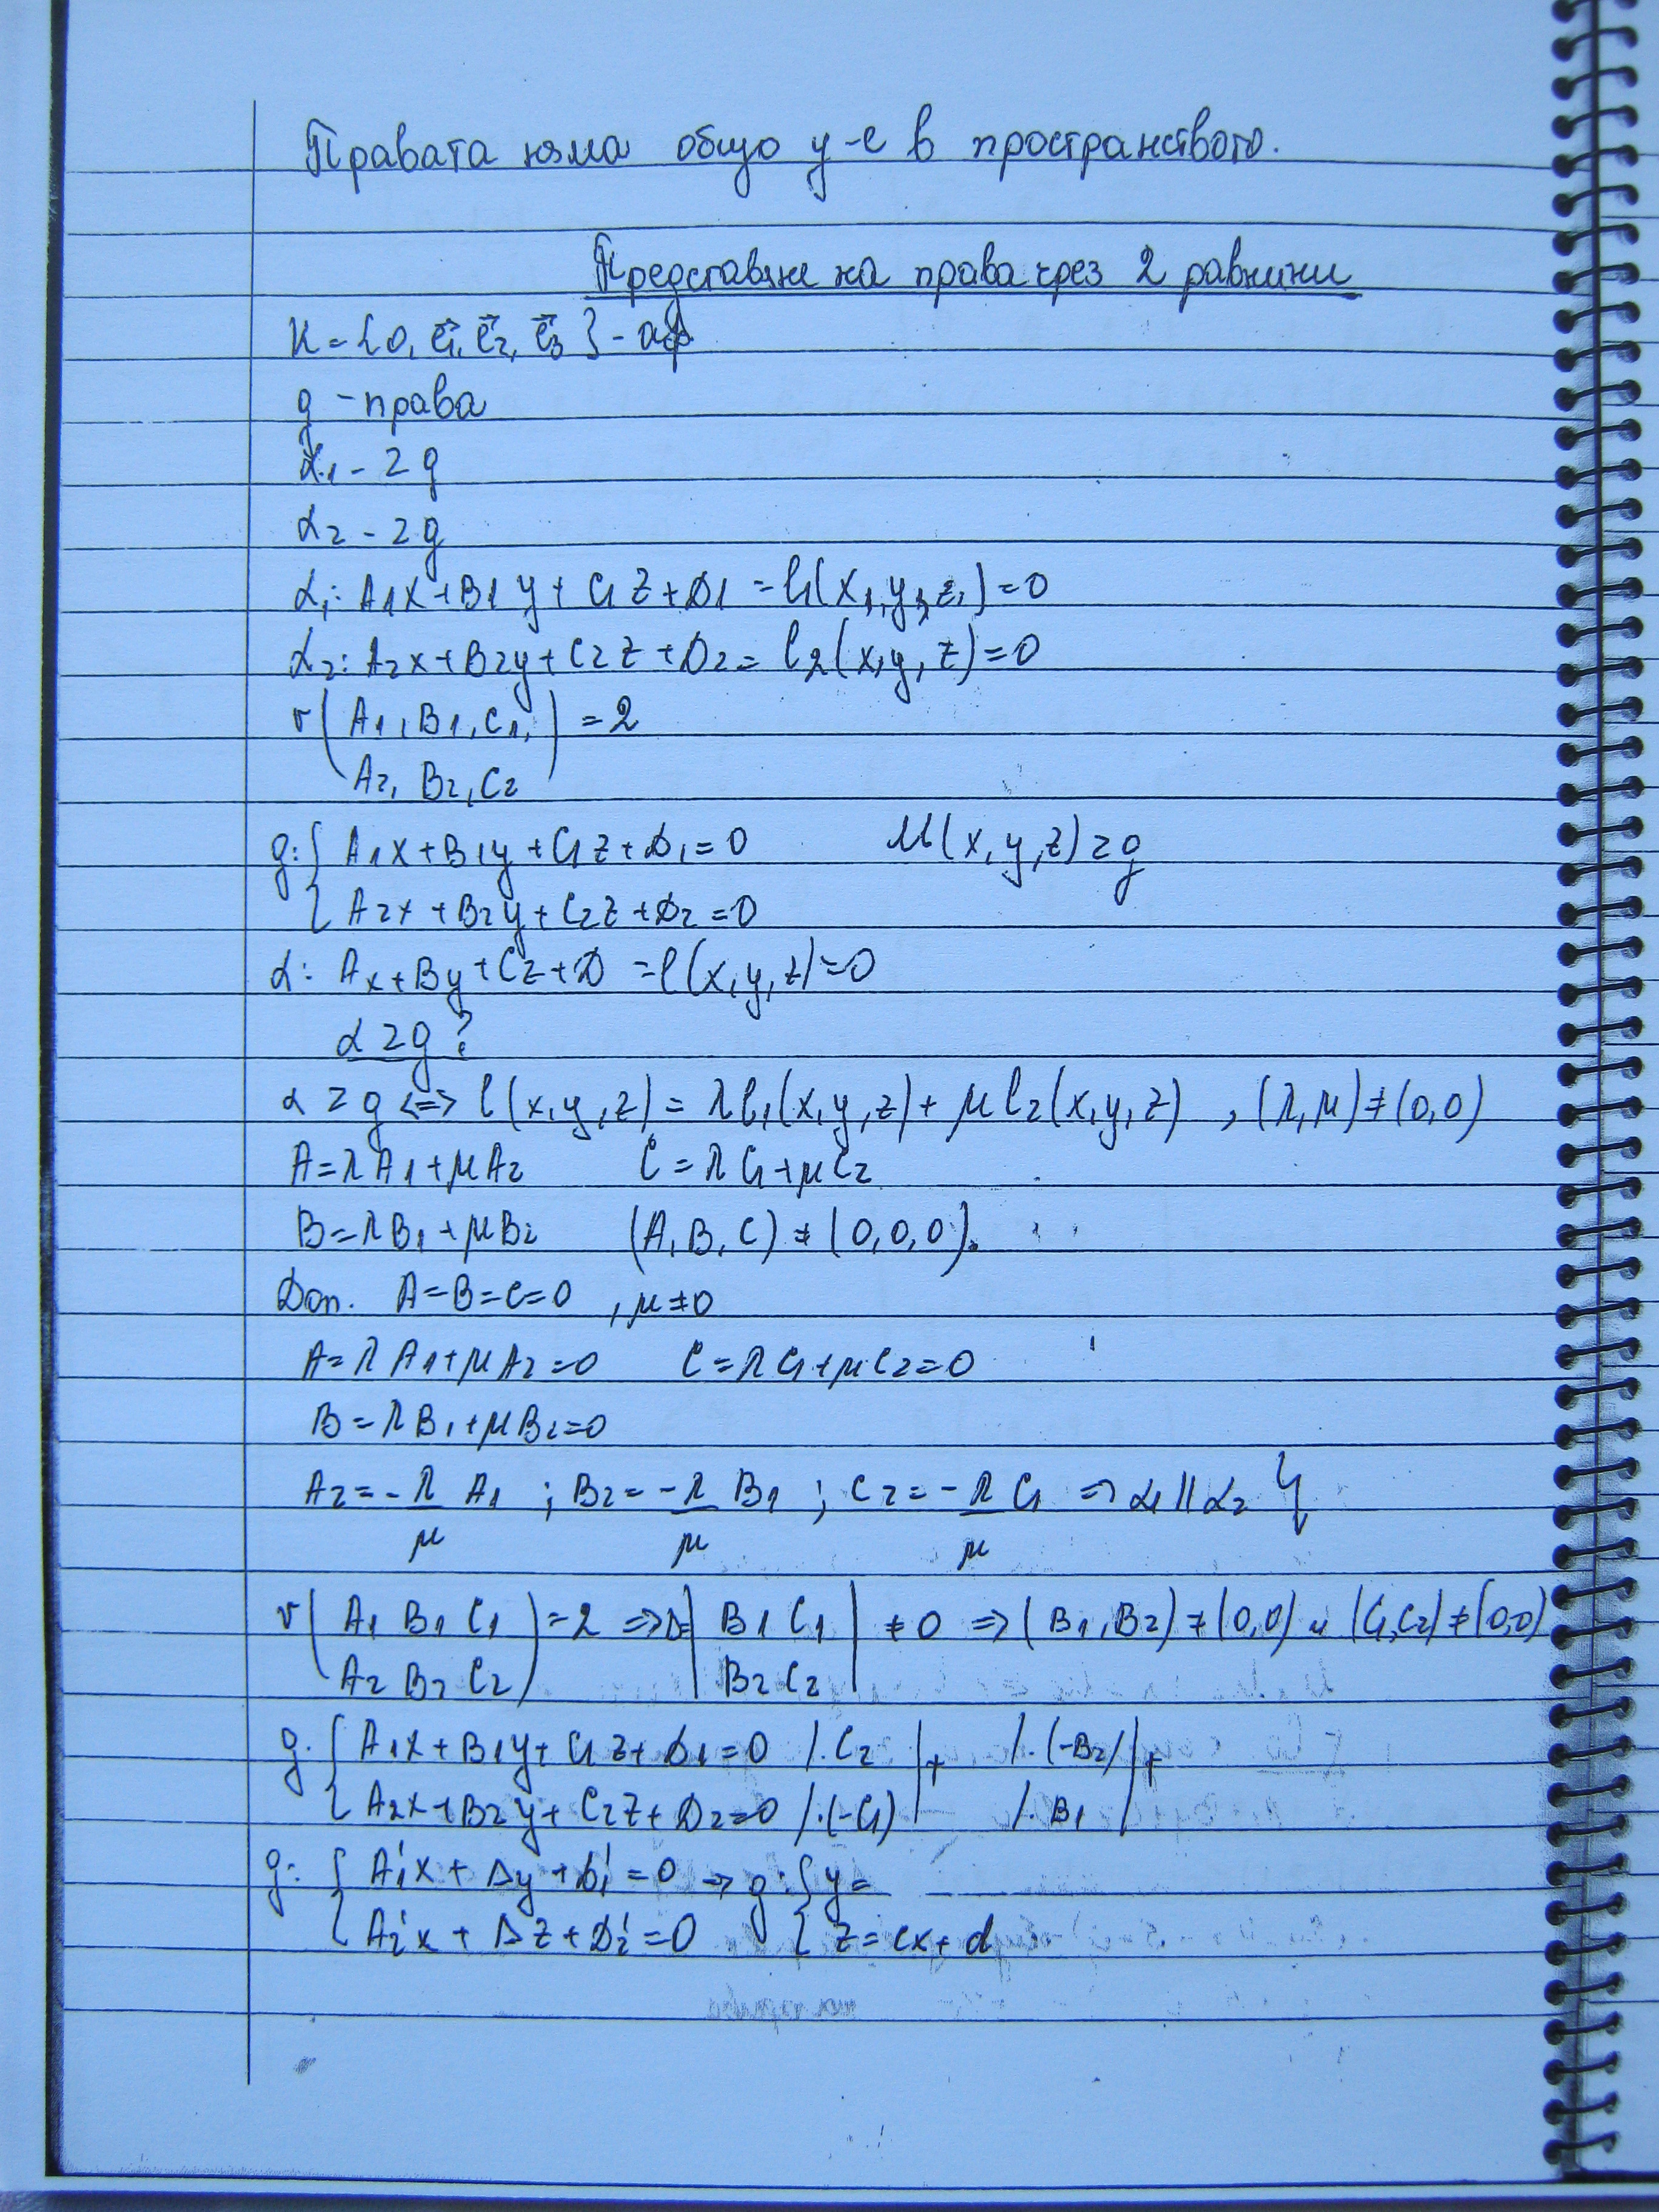 Правата няма общо у-е в пространството.
Представяне на права чрез 2 равнини
K={O, e⃗1, e⃗2, e⃗3 } - аф
g - права
α1 - z g
α2 - z g
α1: A1x+B1y+C1z+D1 = l1(x,y,z)=0
α2: A2x+B2y+C2z+D2 = l2(x,y,z)=0
r(A1, B1, C1, )=2
A2, B2, C2
g: { A1x+B1y+C1z+D1=0 M(x,y,z) z g
{ A2x+B2y+C2z+D2=0
α: Ax+By+Cz+D = l(x,y,z)=0
α z g?
α z g <=> l(x,y,z) = λl1(x,y,z) + μl2(x,y,z) , (λ,μ)≠(0,0)
A=λA1+μA2 C=λC1+μC2
B=λB1+μB2 (A,B,C)≠(0,0,0).
Доп. A=B=C=0 , μ≠0
A=λA1+μA2=0 C=λC1+μC2=0
B=λB1+μB2=0
A2=-λ/μ A1 ; B2=-λ/μ B1 ; C2=-λ/μ C1 => α1 || α2 ↯
r(A1 B1 C1)=2 => Δ=|B1 C1| ≠0 => (B1,B2)≠(0,0) и (C1,C2)≠(0,0)
A2 B2 C2 B2 C2
g: { A1x+B1y+C1z+D1=0 /.C2 |+ /.(-B2) |+
{ A2x+B2y+C2z+D2=0 /.(-C1) /.B1
g: { A1'x+Δy+D1'=0 → g: { y=
{ A2'x+Δz+D2'=0 { z=cx+d